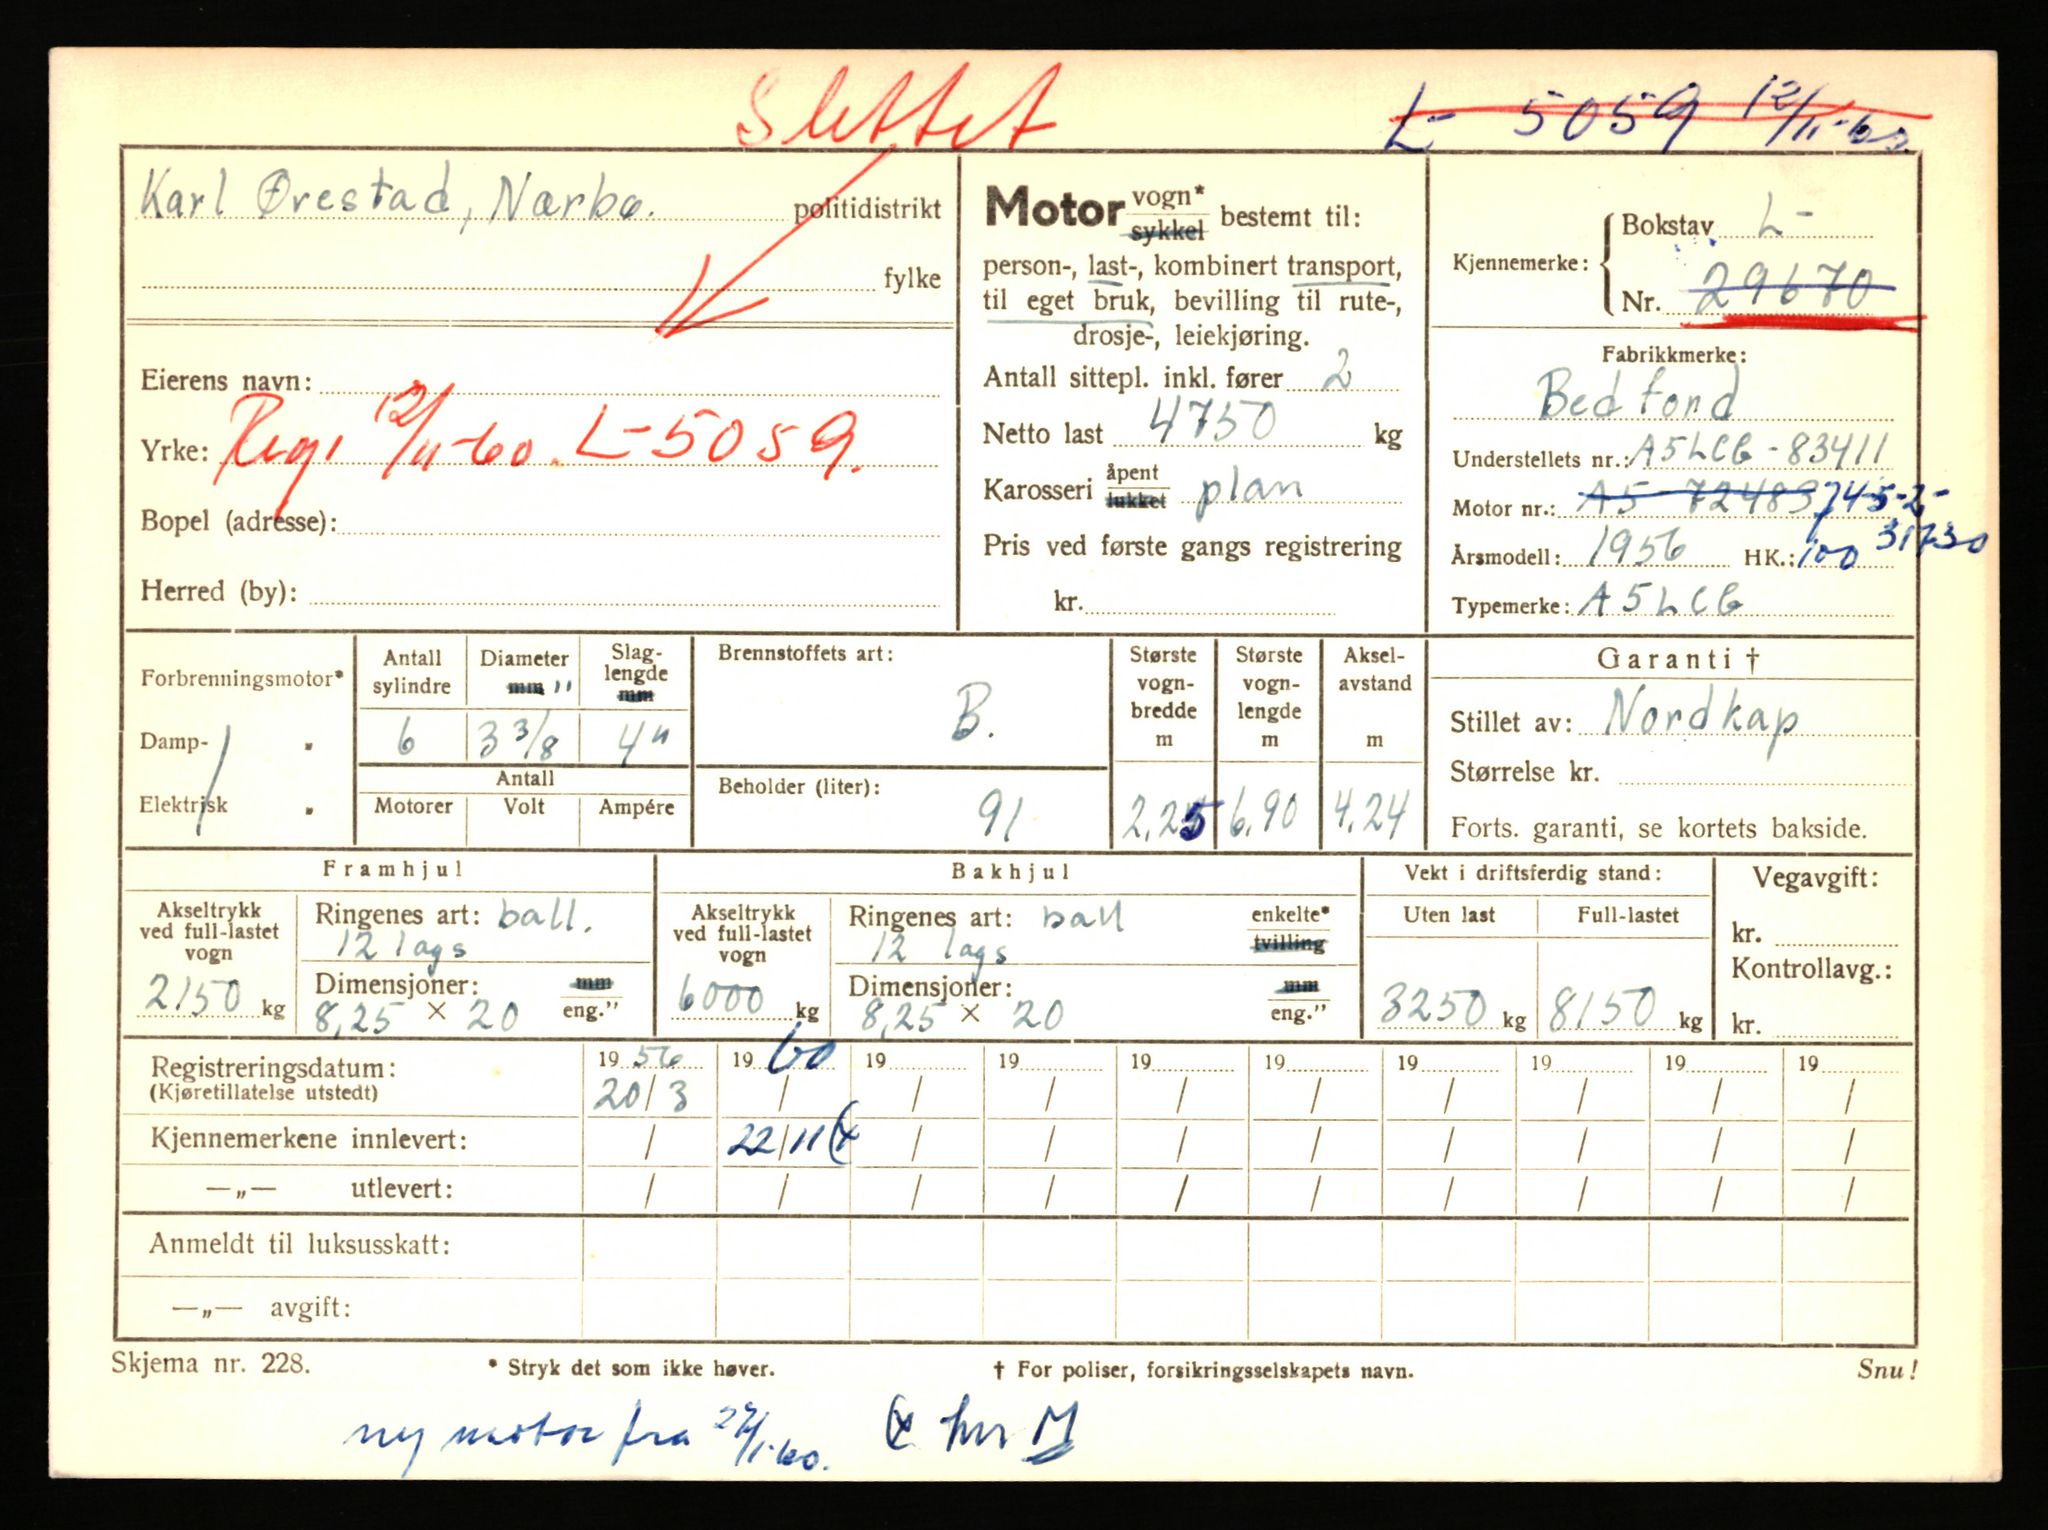 Slettet
L- 5059 12/11-60.
Karl Ørestad, Nærbø. politidistrikt
fylke
Eierens navn:
Yrke: Reg. 12/11-60. L-5059.
Bopel (adresse):
Herred (by):
Motor vogn* sykkel bestemt til:
person-, last-, kombinert transport,
til eget bruk, bevilling til rute-,
drosje-, leiekjøring.
Antall sittepl. inkl. fører 2
Netto last 4750 kg
Karosseri åpent lukket plan
Pris ved første gangs registrering
kr.
Kjennemerke: Bokstav L-
Nr. 29670
Fabrikkmerke:
Bedford
Understellets nr.: A5LCG-83411
Motor nr.: A5-72483 745-2-
31730
Årsmodell: 1956 HK.: 100
Typemerke: A5LCG
Forbrenningsmotor*
Damp- "
Elektrisk "
Antall sylindre
Diameter mm "
Slag-lengde mm
6 3 3/8 4"
Antall
Motorer Volt Ampére
Brennstoffets art:
B.
Beholder (liter):
91
Største vogn-bredde m
2.25
Største vogn-lengde m
6.90
Aksel-avstand m
4.24
Garanti †
Stillet av: Nordkap
Størrelse kr.
Forts. garanti, se kortets bakside.
Framhjul
Akseltrykk ved full-lastet vogn
2150 kg
Ringenes art: ball.
12 lags
Dimensjoner: mm
8,25 × 20 eng."
Bakhjul
Akseltrykk ved full-lastet vogn
6000 kg
Ringenes art: ball enkelte*
12 lags tvilling
Dimensjoner: mm
8,25 × 20 eng."
Vekt i driftsferdig stand:
Uten last Full-lastet
3250 kg 8150 kg
Vegavgift:
kr.
Kontrollavg.:
kr.
Registreringsdatum: 1956 1960 19 19 19 19 19 19 19 19
(Kjøretillatelse utstedt) 20/3 / / / / / / / / /
Kjennemerkene innlevert: / 22/11 (x / / / / / / / /
—„— utlevert: / / / / / / / / / /
Anmeldt til luksusskatt:
—„— avgift:
Skjema nr. 228. * Stryk det som ikke høver. † For poliser, forsikringsselskapets navn. Snu!
ny motor fra 22/11-60. (x hos M